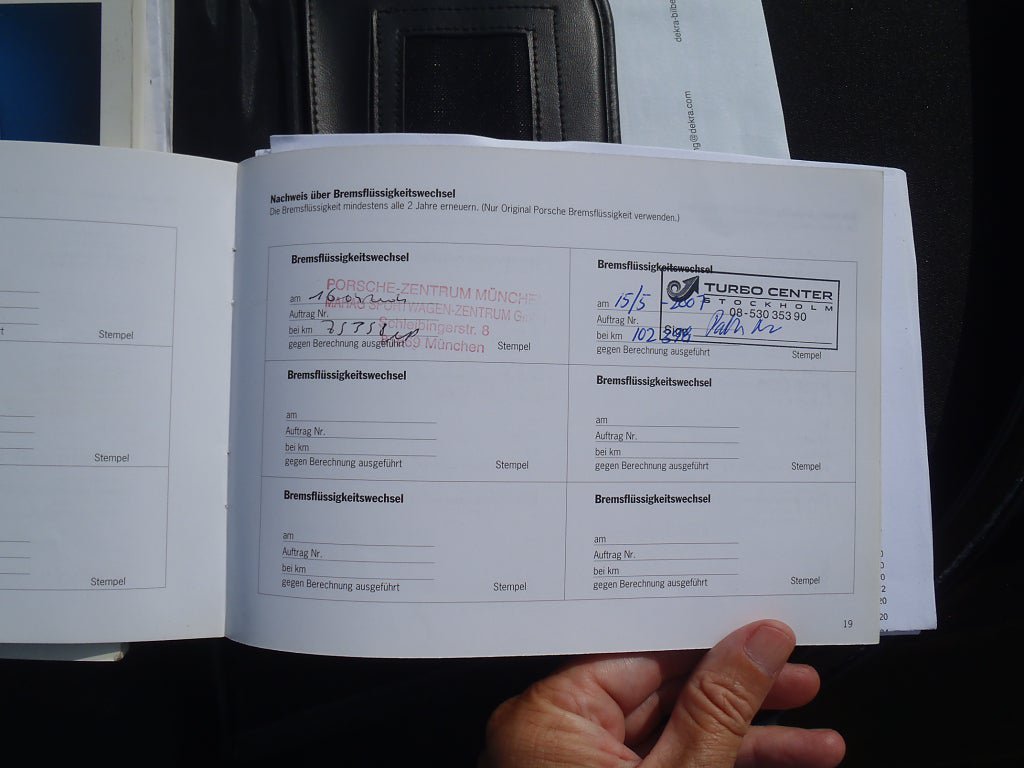 dekra-bilbe
ng@dekra.com
Nachweis über Bremsflüssigkeitswechsel
Die Bremsflüssigkeit mindestens alle 2 Jahre erneuern. (Nur Original Porsche Bremsflüssigkeit verwenden.)
Bremsflüssigkeitswechsel
PORSCHE-ZENTRUM MÜNCHE
MAHAG SPORTWAGEN-ZENTRUM G
Schleibingerstr. 8
69 München
am
Auftrag Nr.
bei km
gegen Berechnung ausgeführt
Stempel
Bremsflüssigkeitswechsel
TURBO CENTER
STOCKHOLM
08-530 353 90
Sign
am 15/5 - 2007
Auftrag Nr.
bei km 102
gegen Berechnung ausgeführt
Stempel
Bremsflüssigkeitswechsel
am
Auftrag Nr.
bei km
gegen Berechnung ausgeführt
Stempel
Bremsflüssigkeitswechsel
am
Auftrag Nr.
bei km
gegen Berechnung ausgeführt
Stempel
Bremsflüssigkeitswechsel
am
Auftrag Nr.
bei km
gegen Berechnung ausgeführt
Stempel
Bremsflüssigkeitswechsel
am
Auftrag Nr.
bei km
gegen Berechnung ausgeführt
Stempel
19
Stempel
Stempel
Stempel
0
0
0
2
20
20